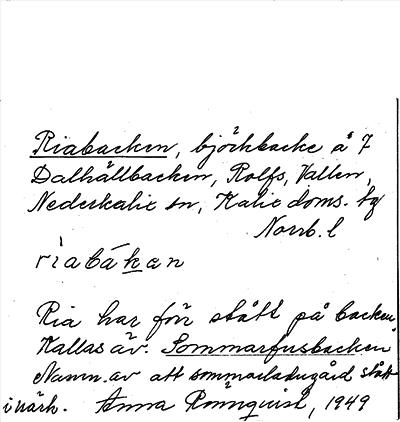 Riabacken, björkbacke å 7
Dalhällbacken, Rolfs, Vallen,
Nederkalix sn, Kalix doms. tg
Norrb. l
riabáken
Ria har förr stått på backen.
Kallas äv. Sommarfusbacken
Namn. av att sommarladugård stått
i närh. Anna Rönnquist, 1949